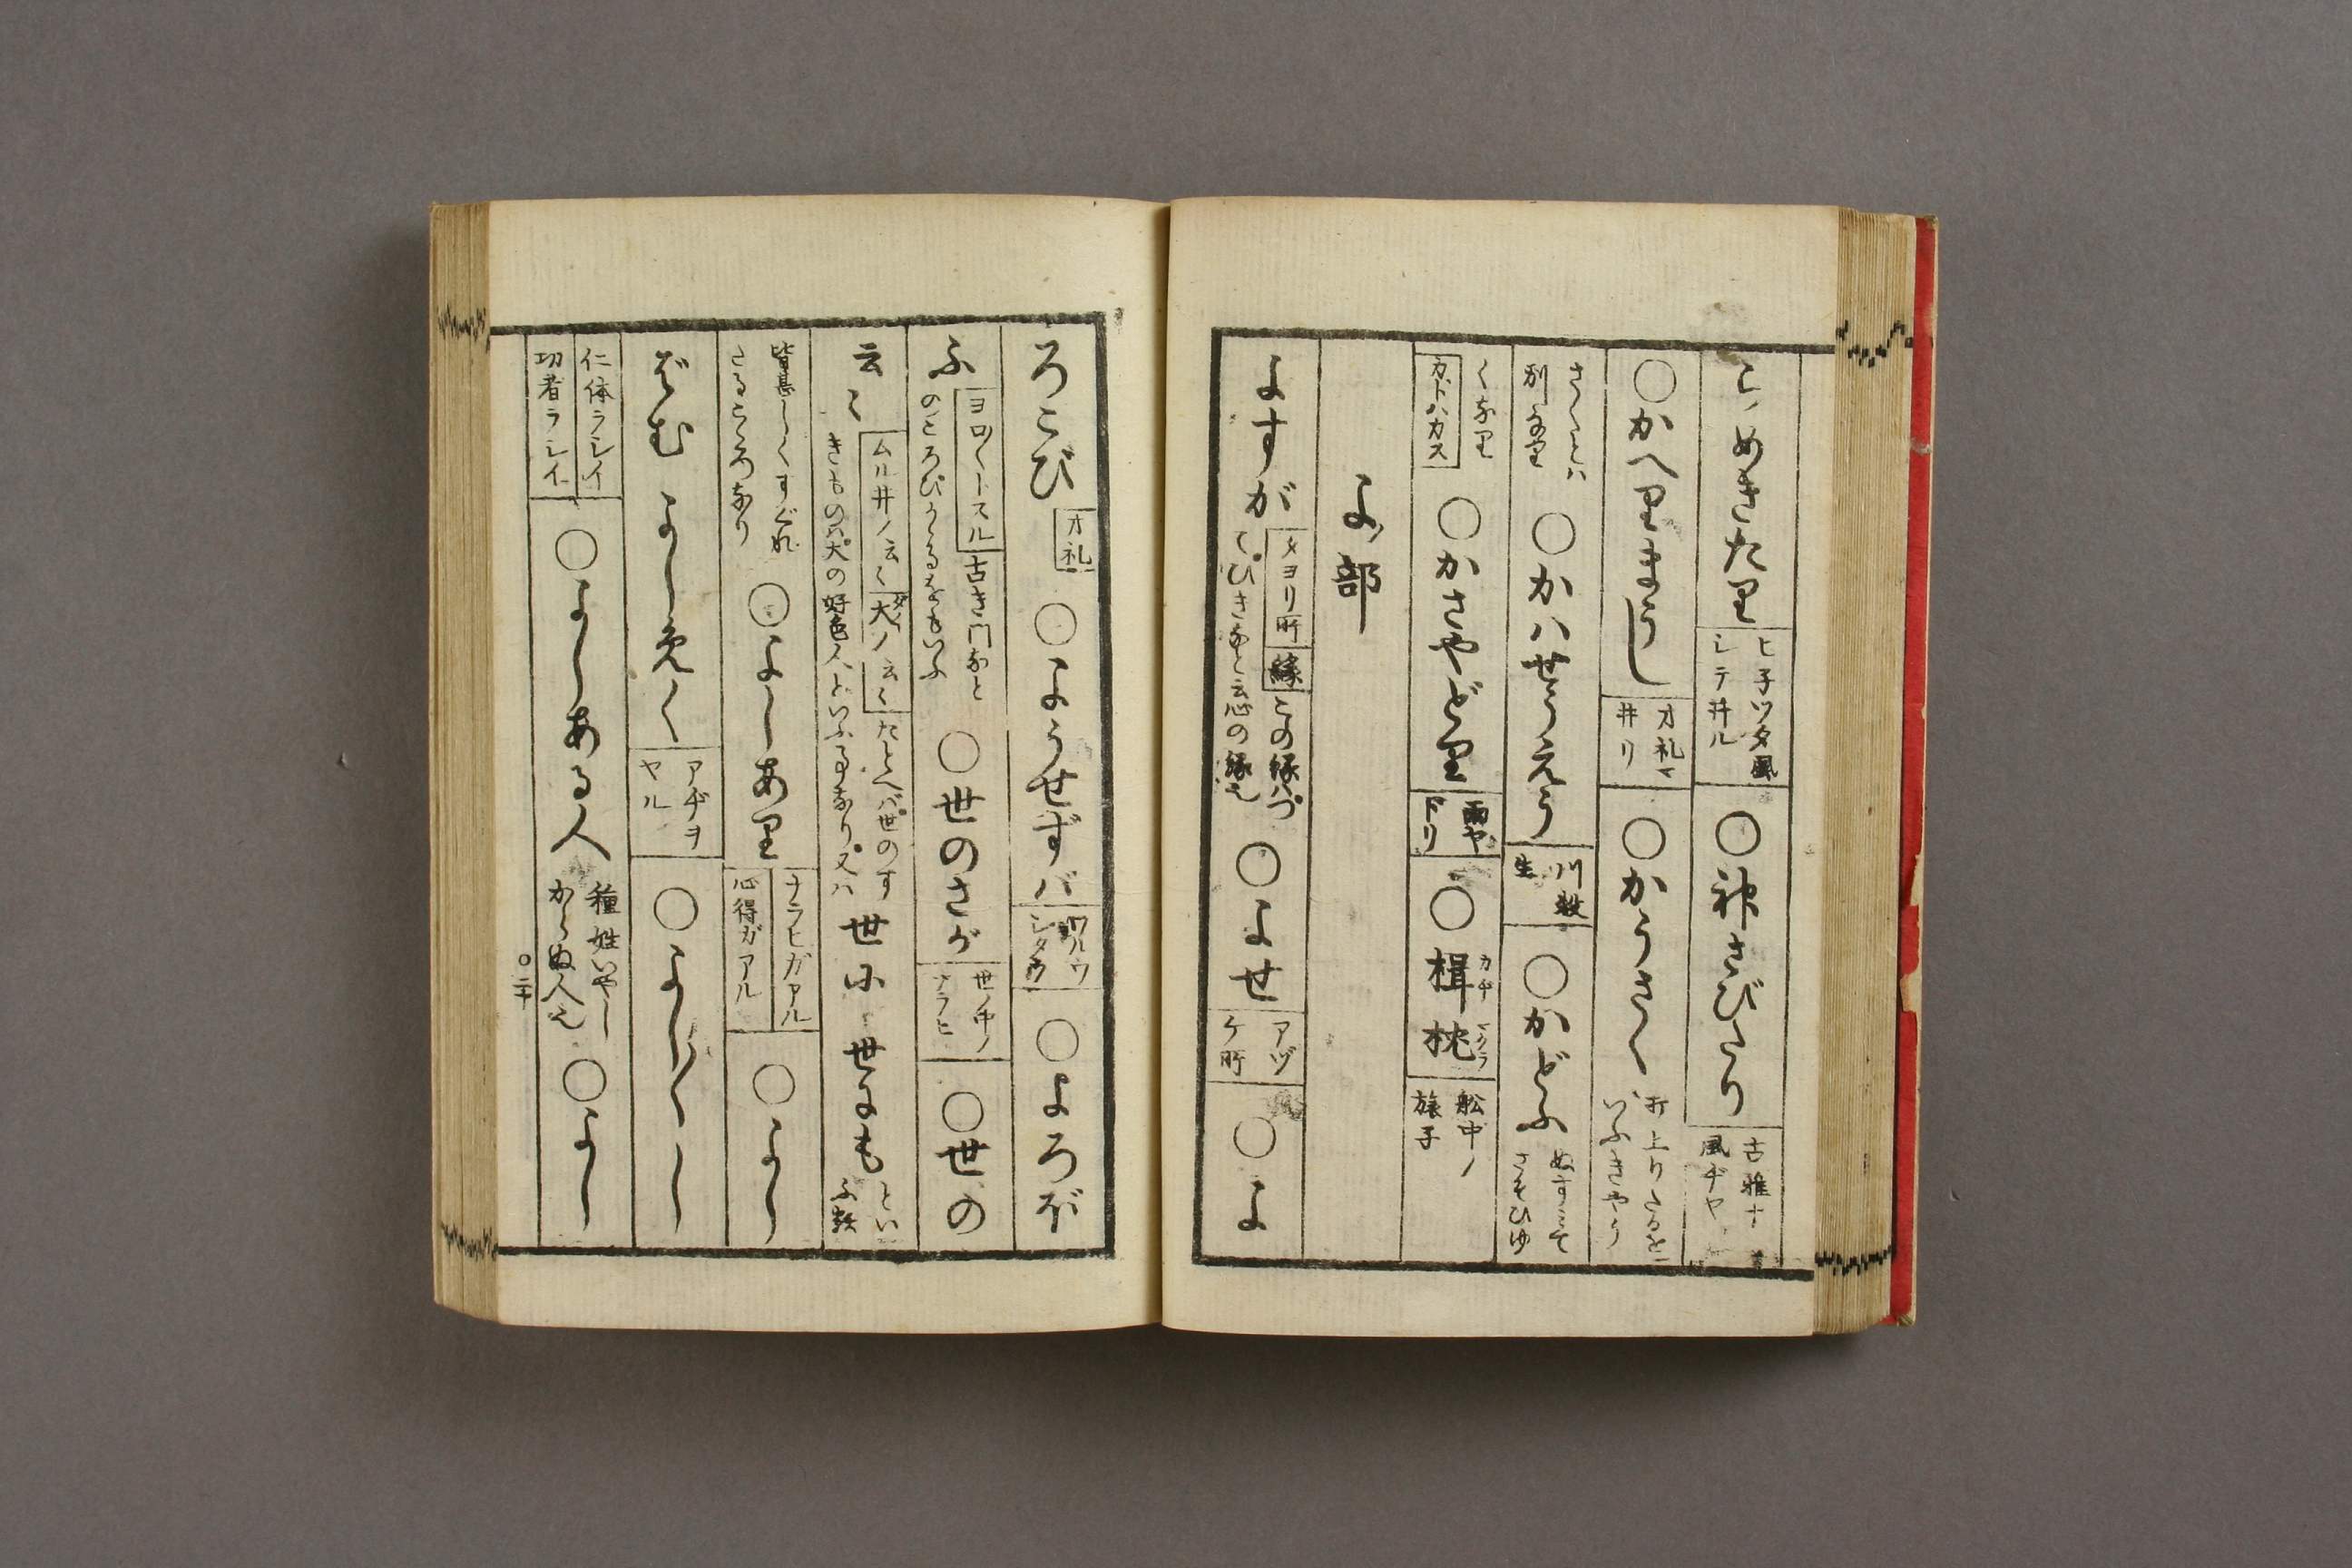 こめきたり ヒ子ツタ風シテ井ル ○神さびたり 古雅ナ風ヂヤ
○かへりまうし オ礼マ井リ ○かうさく 打上りたるをいふきやう
さくとハ別なり ○かハせうえう 川殺生 ○かどふ ぬすミてさそひゆ
くなり カドハカス ○かさやどり 雨ヤドリ ○楫枕 カヂマクラ 舩中ノ旅子
よ部
よすが タヨリ所 縁 この縁ハつてひきなと云心の縁也 ○よせ アヅケ所 ○よ
ろこび オ礼 ○ようせずバ ワルウシタラ ○よろぼ
ふ ヨロ〱トスル 古き門なとのころびかゝるをもいふ ○世のさが 世ノ中ノナラヒ ○世の
云〻 ムル井ノ云〻 大ノ云〻 たとへバ世のすきものハ大の好色人といふる事なり又ハ 世に 世にも といふ歟
皆甚しくすぐれたるこゝろなり ○よしあり ナラヒガアル 心得ガアル ○よし
ばむ よしめく アヂヲヤル ○よし〱し
仁体ラシイ 功者ラシイ ○よしある人 種姓いやしからぬ人也 ○よし